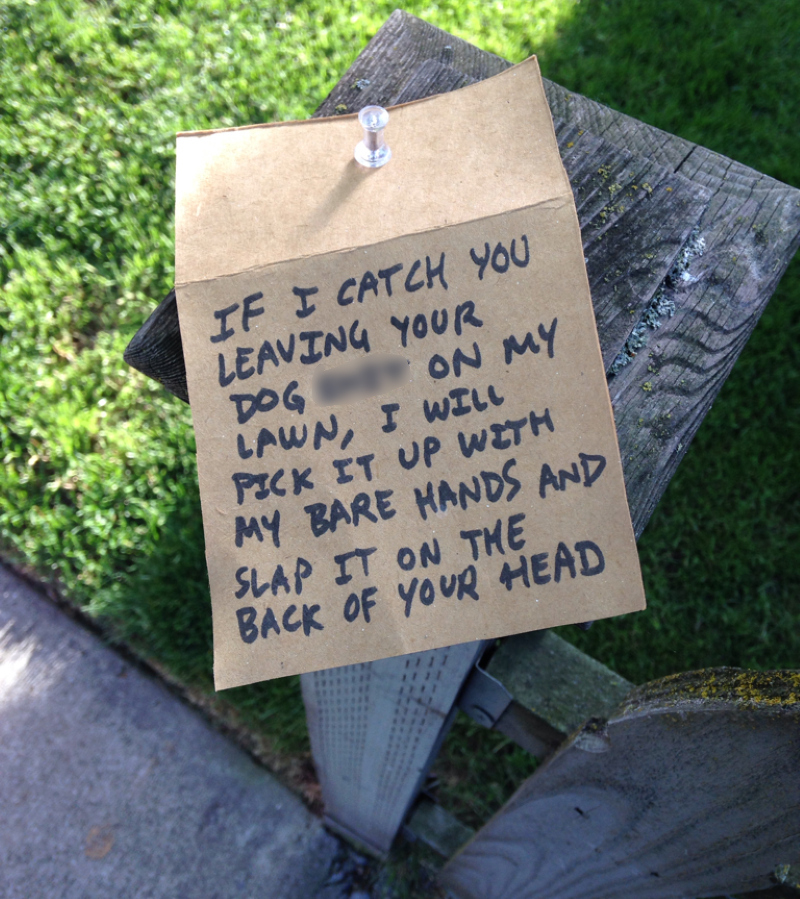 IF I CATCH YOU
LEAVING YOUR
DOG ON MY
LAWN, I WILL
PICK IT UP WITH
MY BARE HANDS AND
SLAP IT ON THE
BACK OF YOUR HEAD